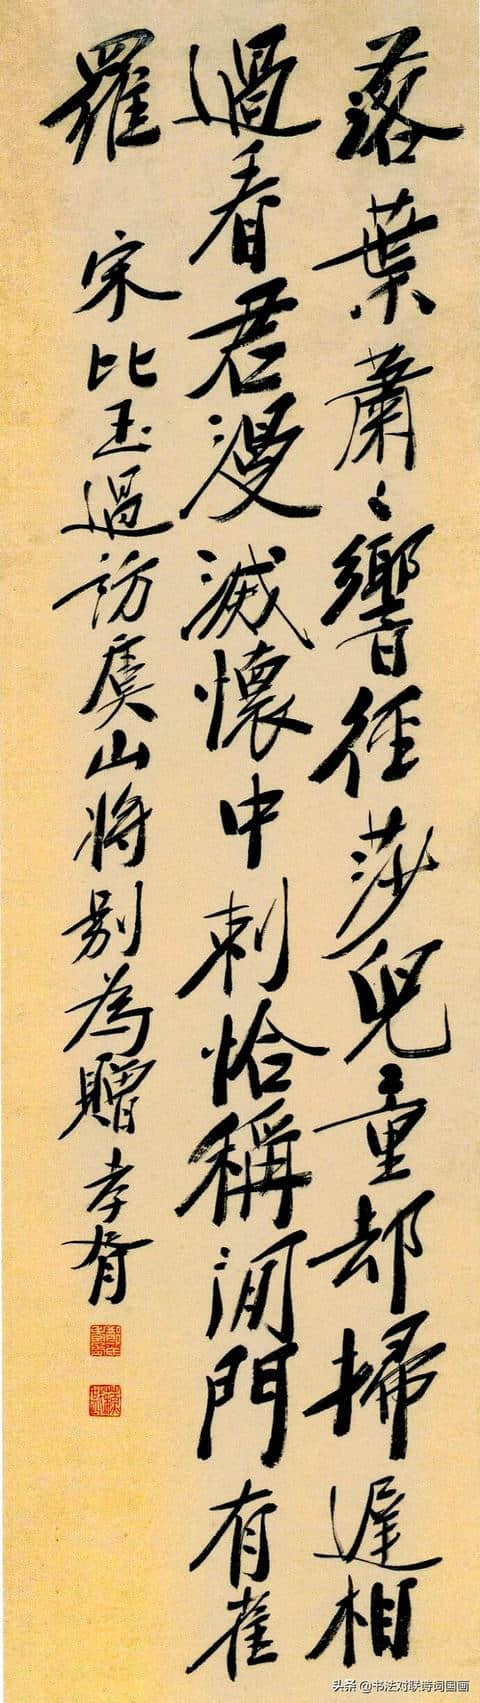 落葉蕭〻響徑莎兒童却掃遲相
過看君漫滅懷中刺恰稱閒門有雀
羅 宋比玉過訪虞山將别為贈 孝胥
头条 @书法对联诗词国画